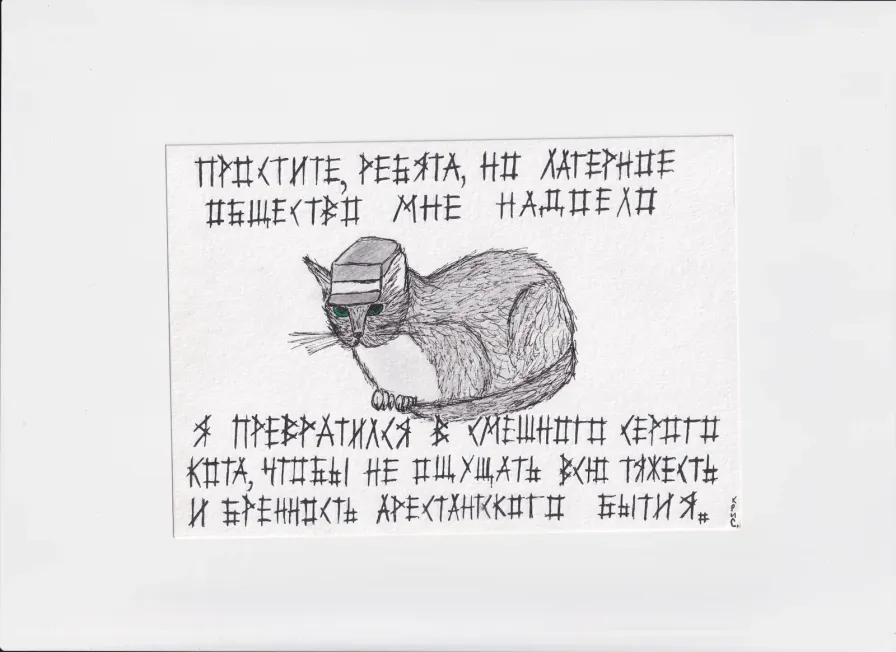 ПРОСТИТЕ, РЕБЯТА, НО ЛАГЕРНОЕ
ОБЩЕСТВО МНЕ НАДОЕЛО
Я ПРЕВРАТИЛСЯ В СМЕШНОГО СЕРОГО
КОТА, ЧТОБЫ НЕ ОЩУЩАТЬ ВСЮ ТЯЖЕСТЬ
И БРЕННОСТЬ АРЕСТАНТСКОГО БЫТИЯ.
КРИС